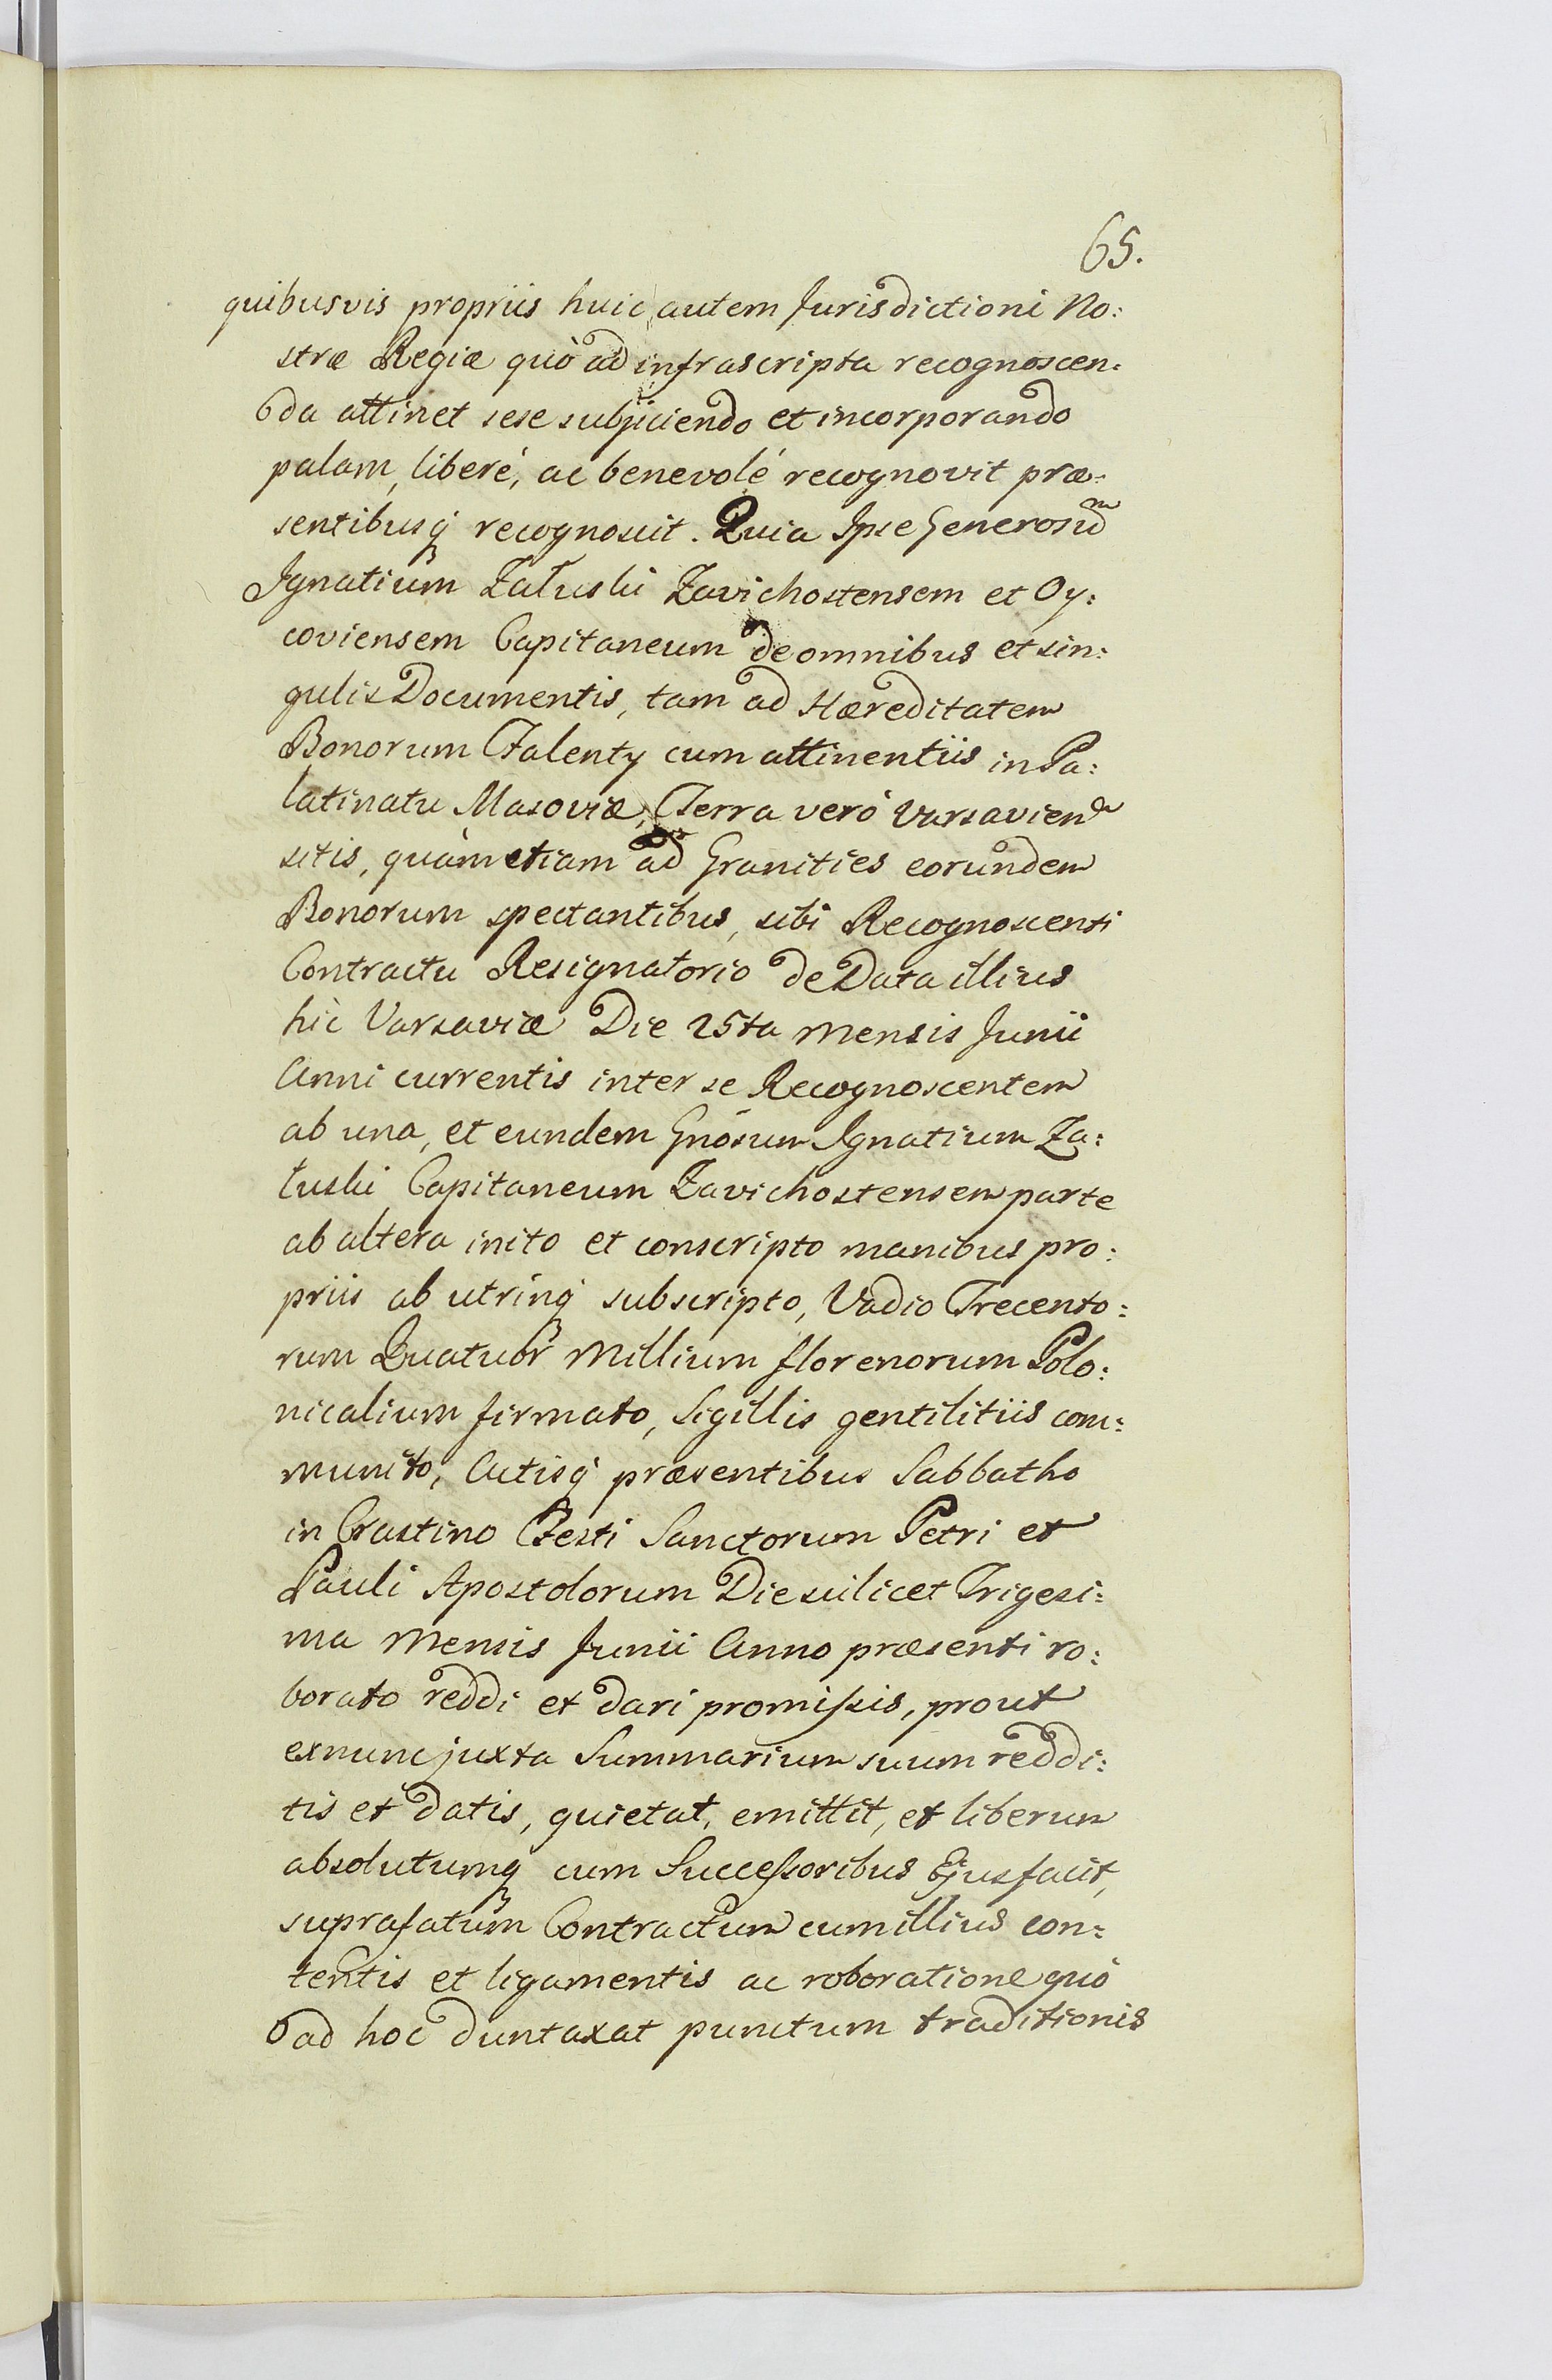 65.
quibusvis propriis huic autem Jurisdictioni No:
stræ Regiæ quò ad infrascripta recognoscen:
da attinet sese subjiciendo et incorporando
palam, liberé, ac benevolé recognovit præ:
sentibusq́ recognoscit. Quia Ipse Generosūm
Ignatium Załuski Zavichostensem et Oy:
coviensem Capitaneum de omnibus et sin:
gulis Documentis, tam ad Hæreditatem
Bonorum Falenty cum attinentiis in Pa:
latinatu Masoviæ, Terra veró Varsavien̄
sitis, quàm etiam ad Granities eorundem
Bonorum spectantibus, sibi Recognoscenti
Contractu Resignatorio de Data illius
hìc Varsaviæ Die 25ta Mensis Junii
Anni currentis inter se Recognoscentem
ab una, et eundem Gnōsum Ignatium Za:
łuski Capitaneum Zavichostensem parte
ab altera inito et conscripto manibus pro:
priis ab utrinq́ subscripto, Vadio Trecento:
rum Quatuor Millium florenorum Polo:
nicalium firmato, Sigillis gentilitiis com:
munito, Actisq́ præsentibus Sabbatho
in Crastino Festi Sanctorum Petri et
Pauli Apostolorum Die scilicet Trigesi:
ma Mensis Junii Anno præsenti ro:
borato reddi et dari promissis, prout
exnunc juxta Summarium suum reddi:
tis et datis, quietat, emittit, et liberum
absolutumq cum Successoribus Ejus facit,
suprafatum Contractum cum illius con:
tentis et ligamentis ac roboratione quò
ad hoc duntaxat punctum traditionis